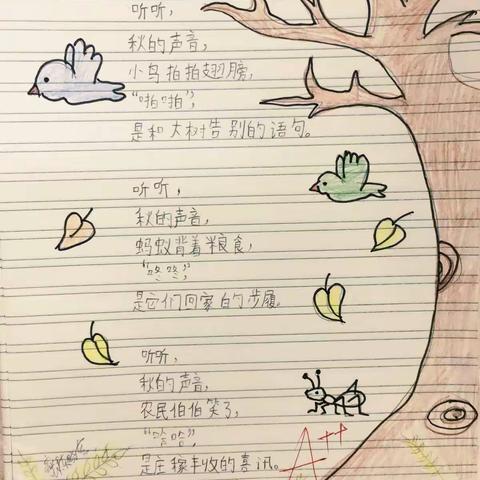 听听，
秋的声音，
小鸟拍拍翅膀，
“啪啪”，
是和大树告别的语句。
听听，
秋的声音，
蚂蚁背着粮食，
“咚咚”，
是它们回家的步履。
听听，
秋的声音，
农民伯伯笑了，
“哈哈”，
是庄稼丰收的喜讯。
A++